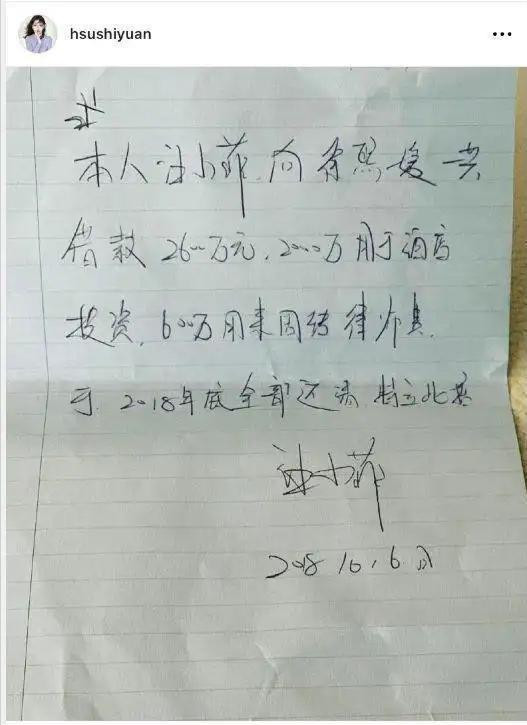 hsushiyuan
本人汪小菲,向徐熙媛共
借款2600万元,2000万用于酒店
投资,600万用来周转律师费.
于2018年底全部还清,特立此据
汪小菲